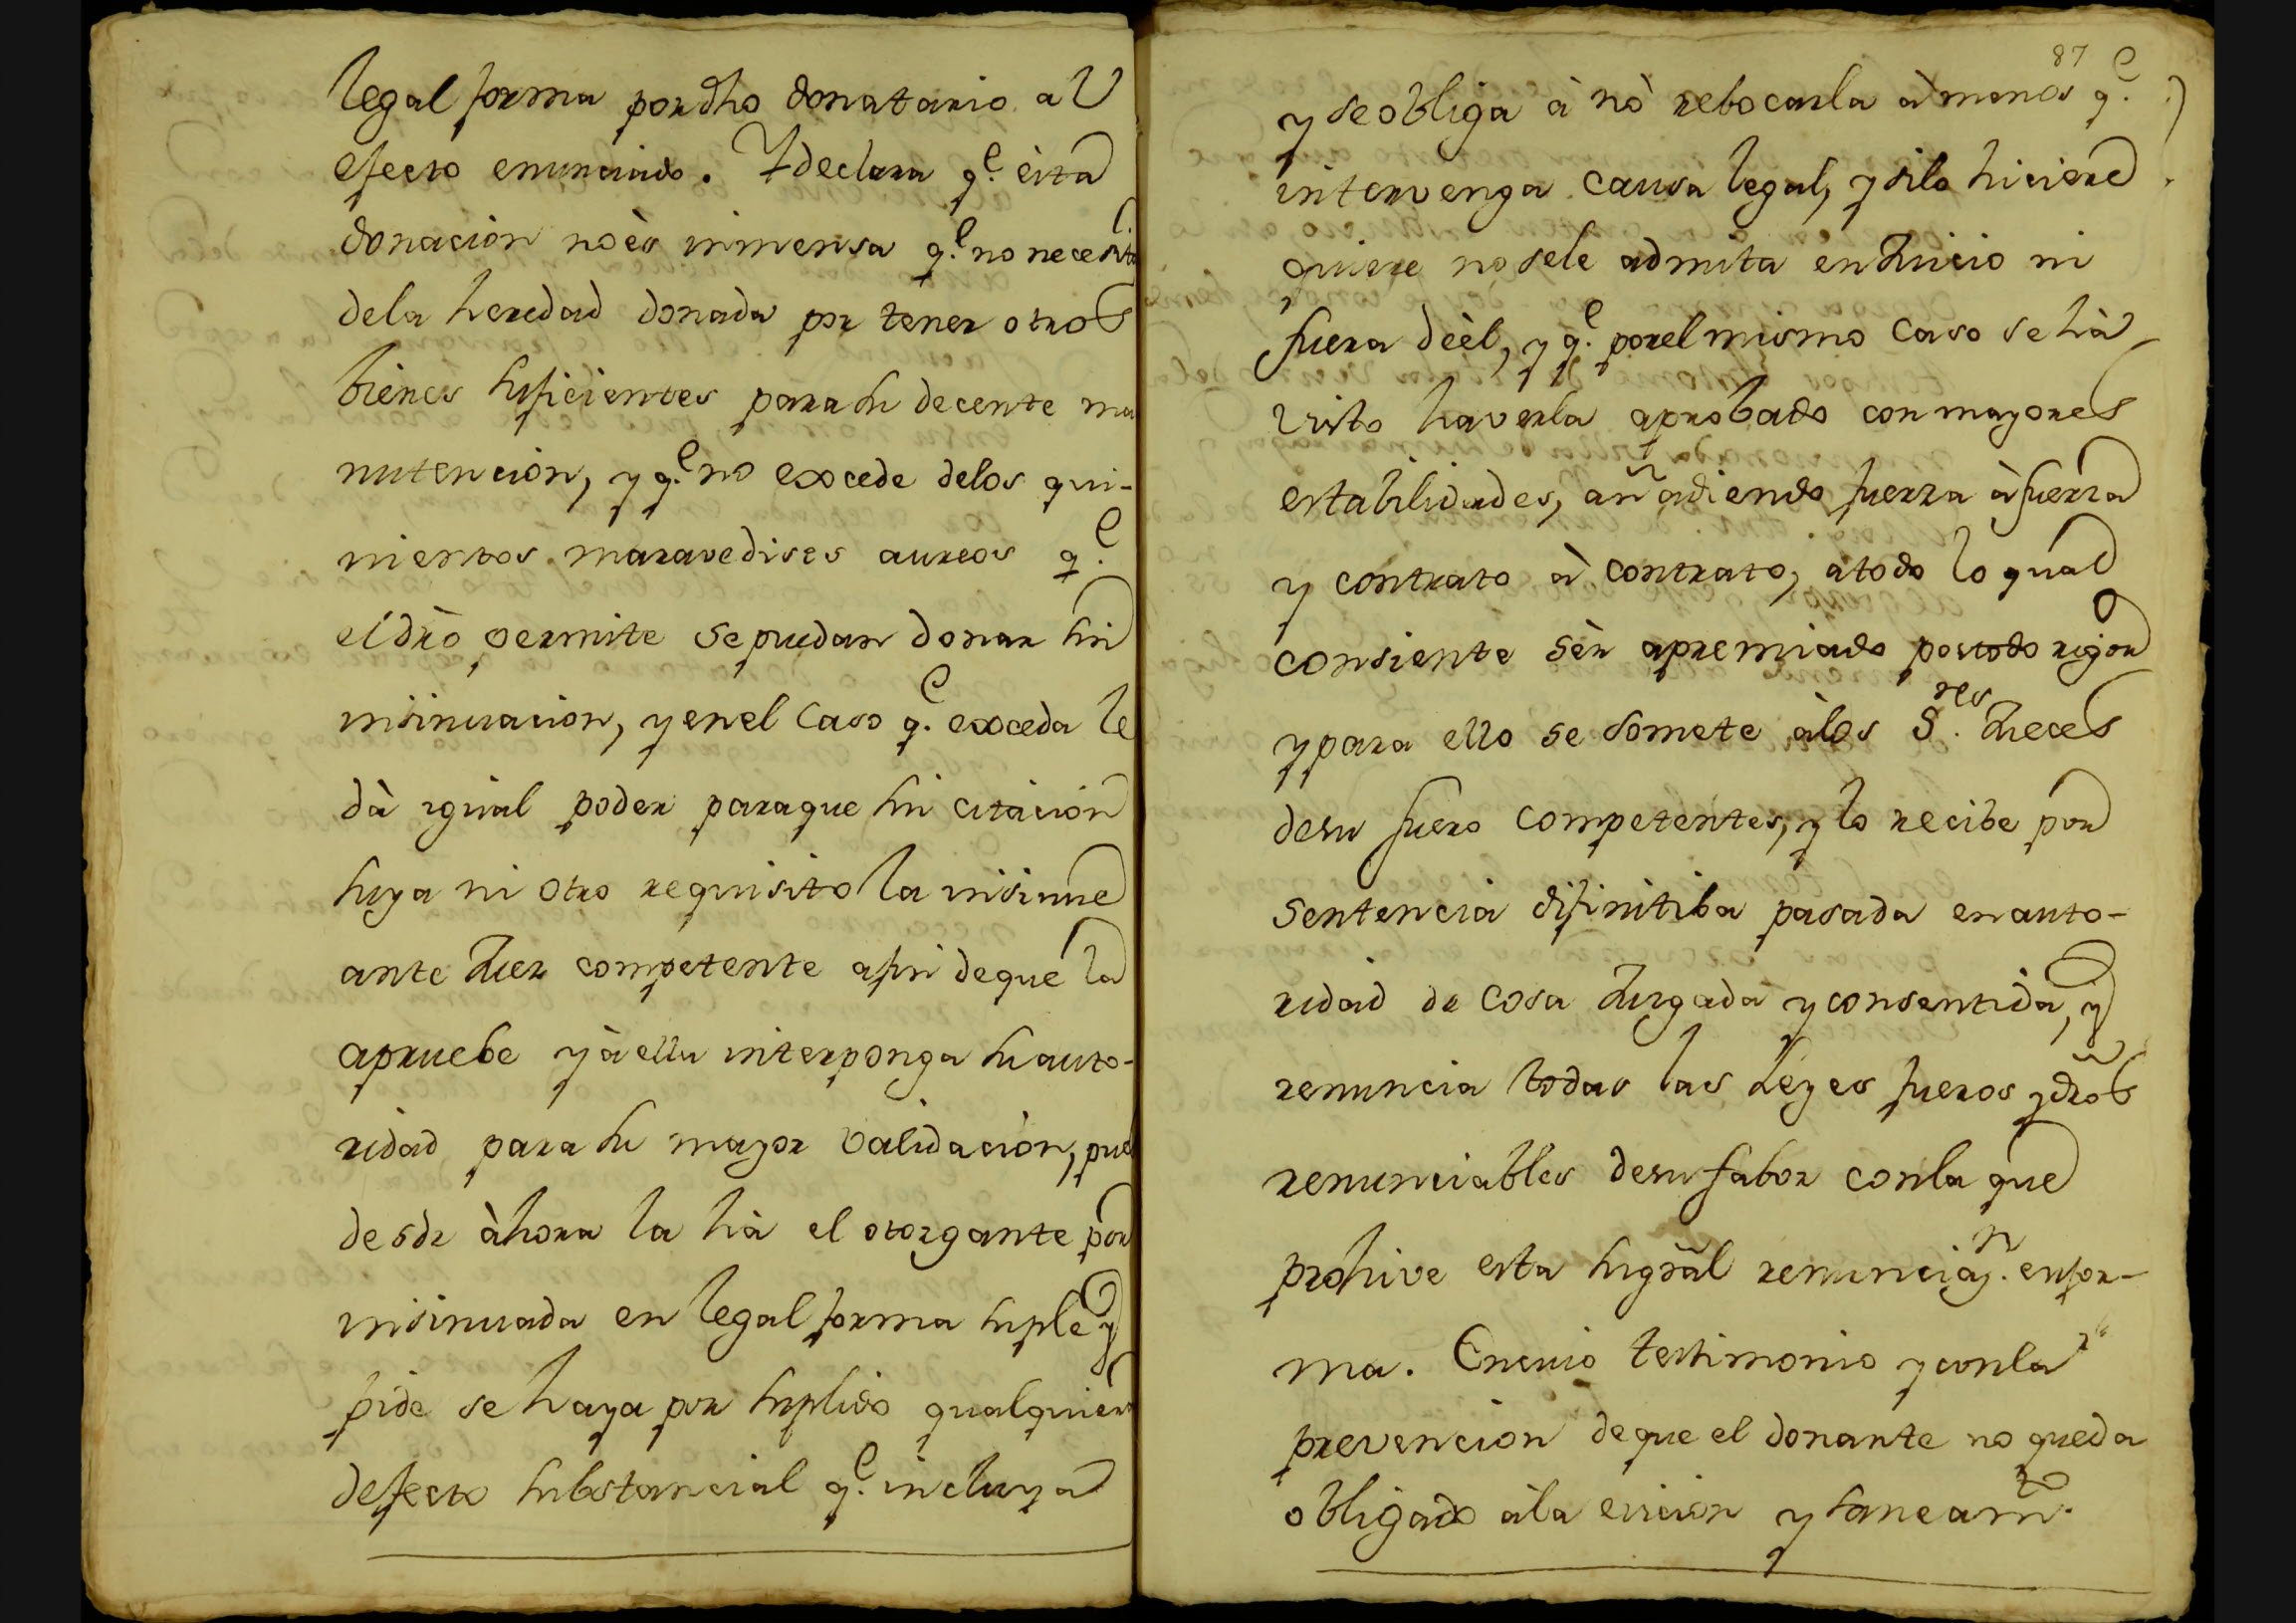 legal forma por dho donatario al
efecto enunciado. Y declara q.e ésta
donación nó és inmensa q.e no necesita
dela heredad donada por tener otros
bienes suficientes para su decente ma
nutencion, y q.e no excede delos qui-
nientos maravedises aureos q.e
el dro permite se puedan donar sin
insinuacion, y en el caso q.e exceda le
dà igual poder paraque sin citación
suya ni otro requisito la insinue
ante Juez competente afin deque la
apruebe y à ella interponga su auto-
ridad para su mayor validación, pues
desde àhora la hà el otorgante por
insinuada en legal forma suple y
pide se haya por suplido qualquiera
defecto substancial q.e incluya
87
y se obliga à nò rebocarla à menos q.e
intervenga causa legal, y silo hiciere
quiere no sele admita en Juicio ni
fuera deèl, y q.e porel mismo caso se hà
visto haverla aprobado con mayores
estabilidades, añadiendo fuerza à fuerza
y contrato à contrato, atodo lo qual
consiente sèr apremiado por todo rigor
y para ello se somete àlos S.res Jueces
desu fuero competentes, y lo recibe por
sentencia difinitiba pasada en auto-
ridad de cosa Juzgada y consentida, y
renuncia todas las Leyes fueros y dros
renunciables desu fabor conla que
prohive esta su gral renunciaz.n en for-
ma. En cuio testimonio y conla
prevencion deque el donante no queda
obligado àla evicion y saneam.to